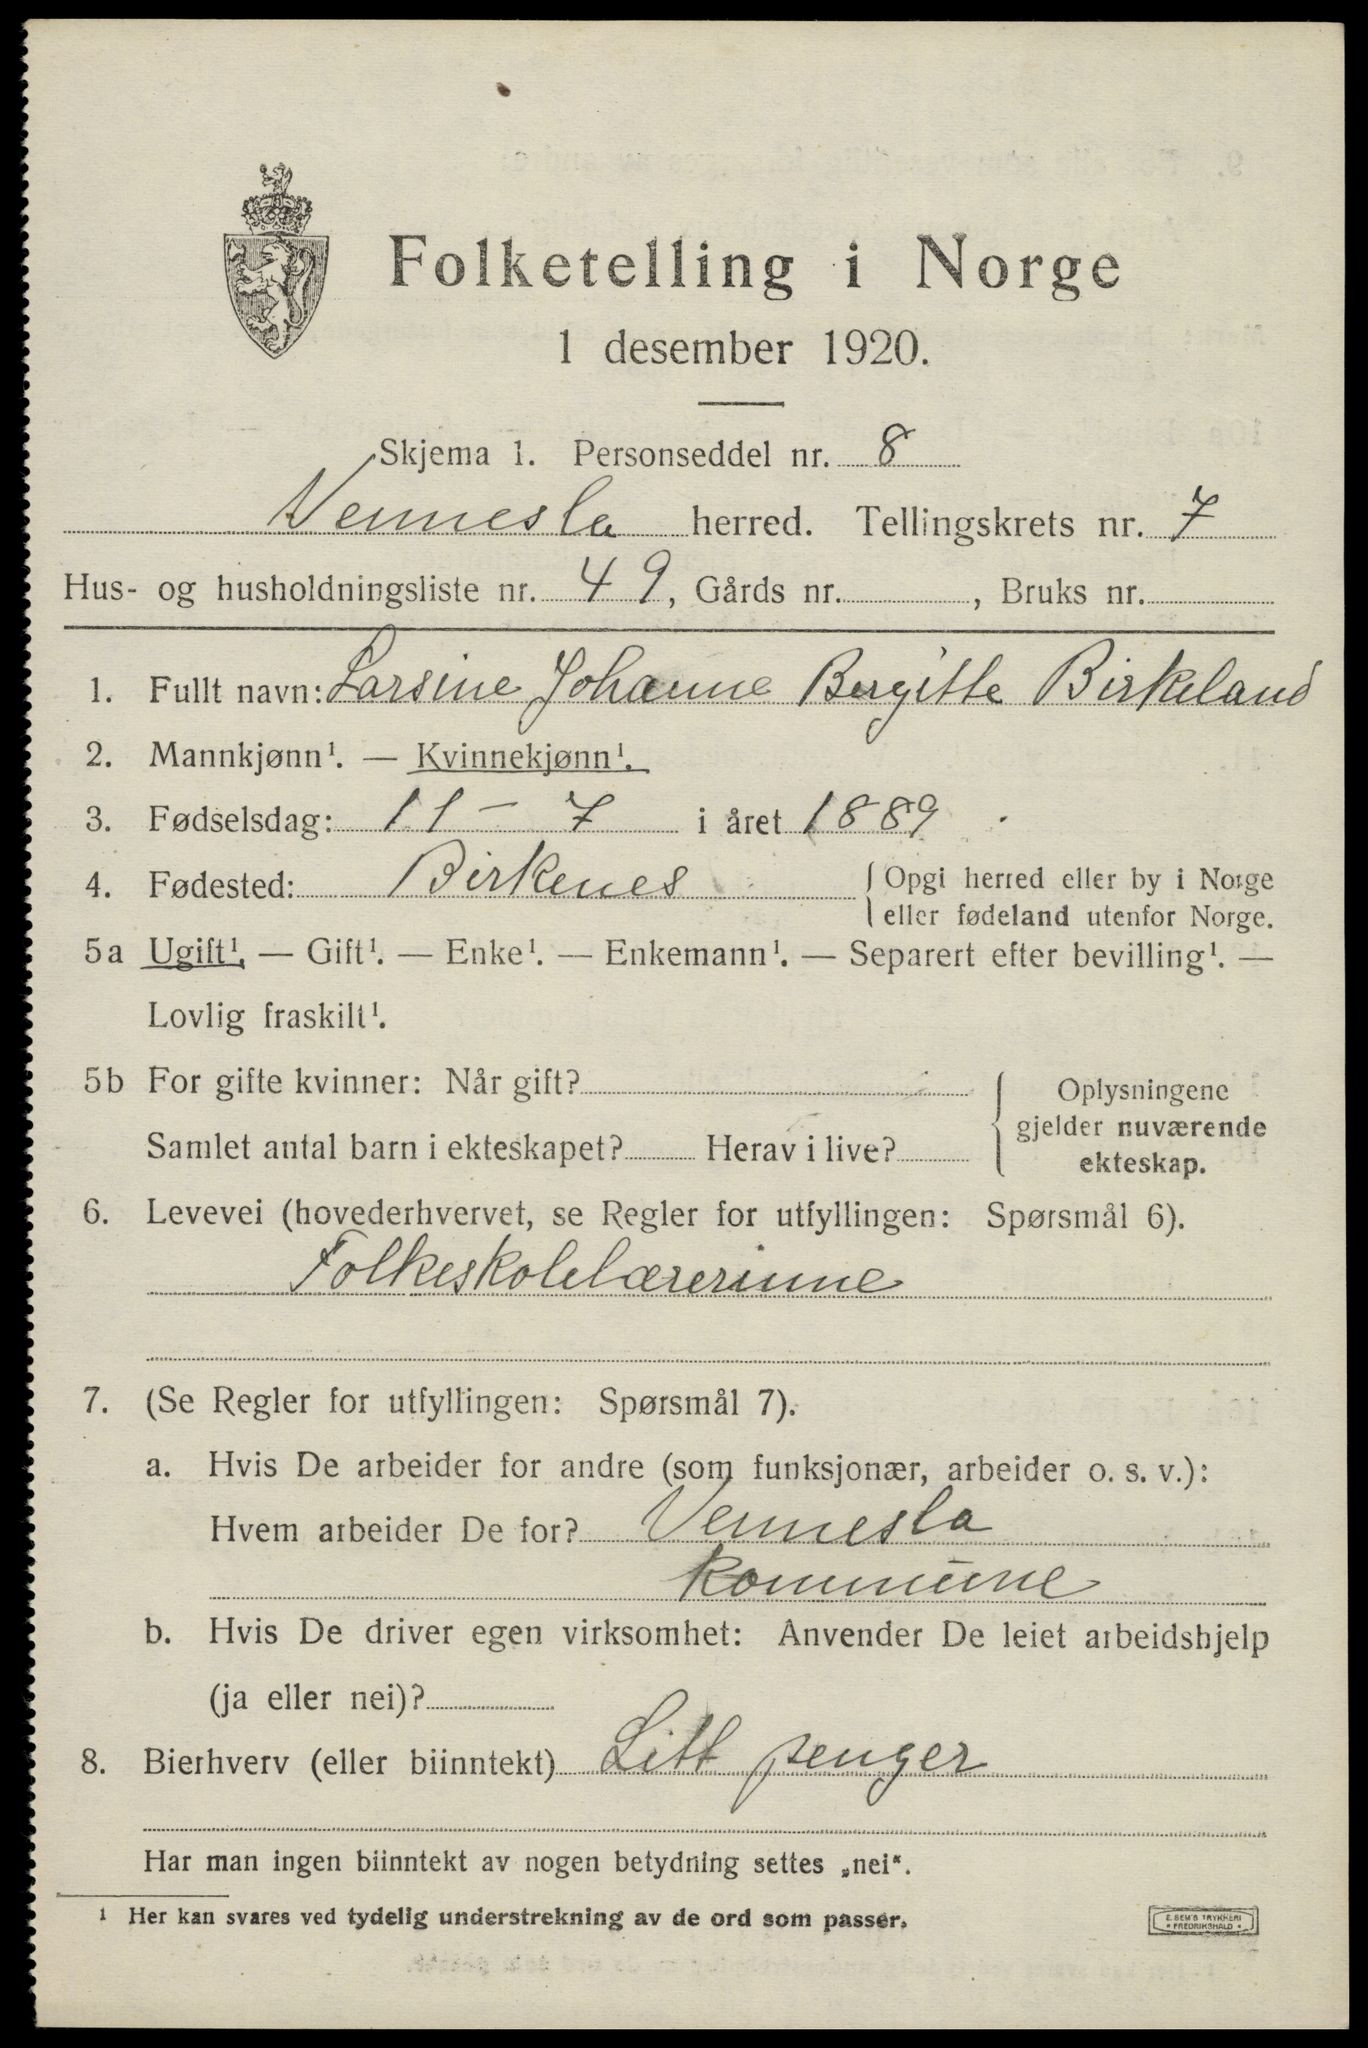 Folketelling i Norge
1 desember 1920.
Skjema 1. Personseddel nr. 8
Vennesla herred. Tellingskrets nr. 7
Hus- og husholdningsliste nr. 49, Gårds nr. , Bruks nr.
1. Fullt navn: Larsine Johanne Bergitte Birkeland
2. Mannkjønn¹. — Kvinnekjønn¹.
3. Fødselsdag: 11 - 7 i året 1889
4. Fødested: Birkenes {Opgi herred eller by i Norge
eller fødeland utenfor Norge.
5a Ugift¹. — Gift¹. — Enke¹. — Enkemann¹. — Separert efter bevilling¹. —
Lovlig fraskilt¹.
5b For gifte kvinner: Når gift?
Samlet antal barn i ekteskapet? Herav i live?
Oplysningene
gjelder nuværende
ekteskap.
6. Levevei (hovederhvervet, se Regler for utfyllingen: Spørsmål 6).
Folkeskolelærerinne
7. (Se Regler for utfyllingen: Spørsmål 7).
a. Hvis De arbeider for andre (som funksjonær, arbeider o. s. v.):
Hvem arbeider De for? Vennesla
kommune
b. Hvis De driver egen virksomhet: Anvender De leiet arbeidshjelp
(ja eller nei)?
8. Bierhverv (eller biinntekt) Litt penger
Har man ingen biinntekt av nogen betydning settes „nei“.
¹ Her kan svares ved tydelig understrekning av de ord som passer.
E. SEM'S TRYKKERI
FREDRIKSHALD